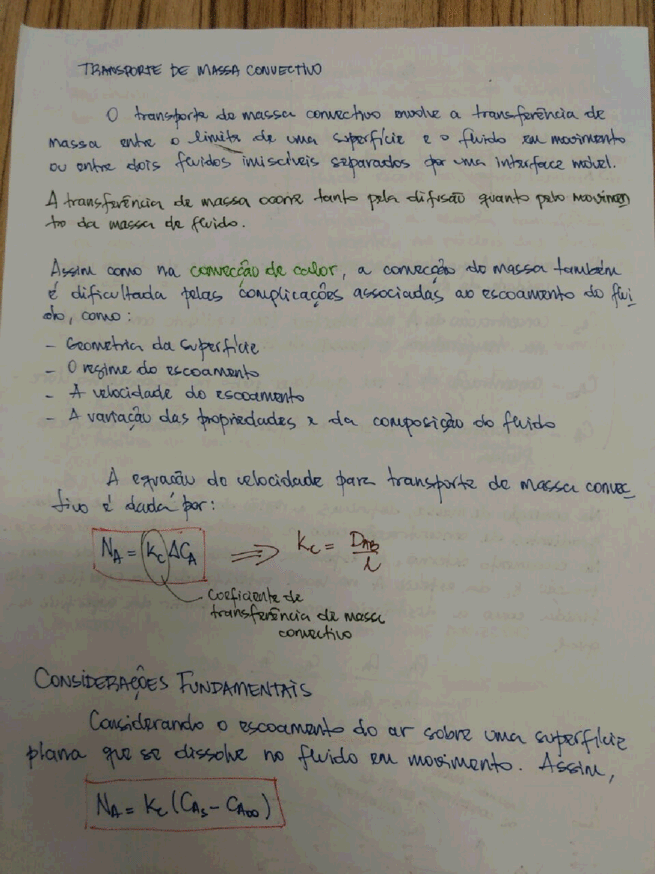 TRANSPORTE DE MASSA CONVECTIVO
O transporte de massa convectivo envolve a transferência de
massa entre o limite de uma superfície e o fluido em movimento
ou entre dois fluidos imiscíveis separados por uma interface móvel.
A transferência de massa ocorre tanto pela difusão quanto pelo movimen
to da massa de fluido.
Assim como na convecção de calor, a convecção de massa também
é dificultada pelas complicações associadas ao escoamento do flui
do, como:
- Geometria da superfície
- O regime do escoamento
- A velocidade do escoamento
- A variação das propriedades e da composição do fluido
A equação da velocidade para transporte de massa convec
tivo é dada por:
N_A = k_c ΔC_A ⇒ k_c = D_AB / L
Coeficiente de
transferência de massa
convectivo
CONSIDERAÇÕES FUNDAMENTAIS
Considerando o escoamento do ar sobre uma superfície
plana que se dissolve no fluido em movimento. Assim,
N_A = k_c (C_As - C_A∞)